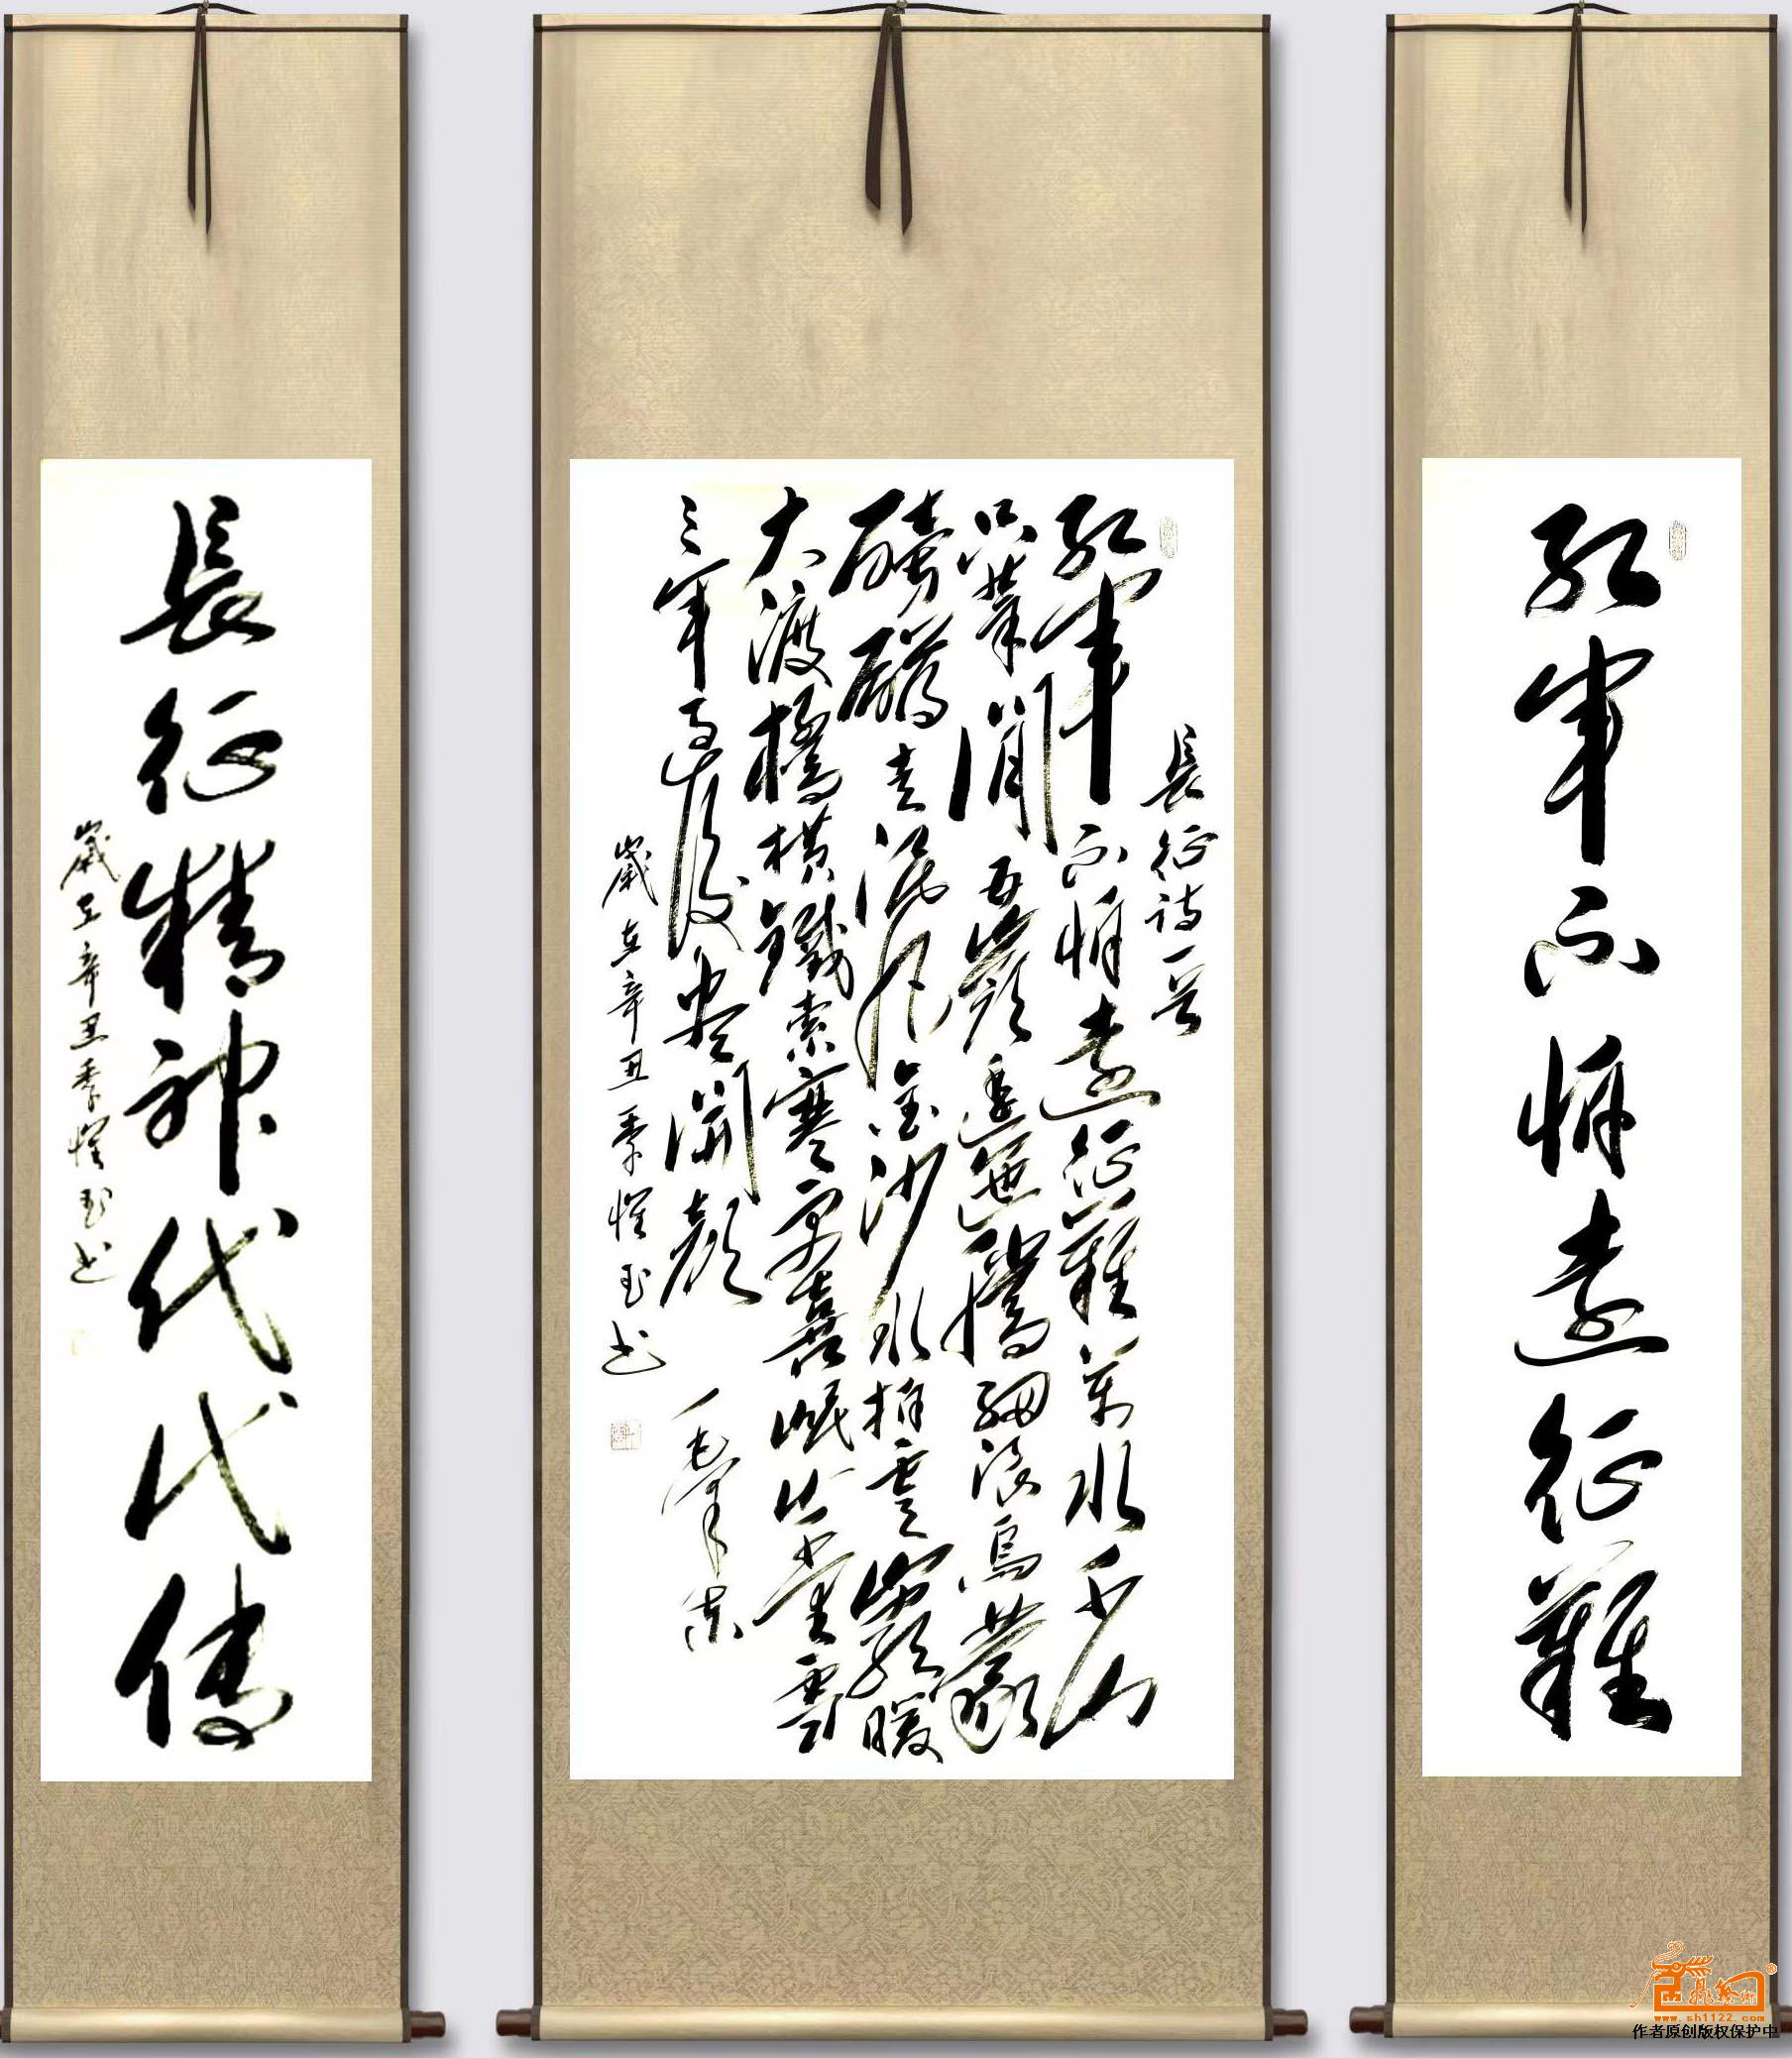 红軍不怕遠征難
長征诗一首
红軍不怕遠征難萬水千山
只等閒五嶺逶迤騰细浪烏蒙
磅礴走泥丸金沙水拍雲崖暖
大渡橋横鐵索寒更喜岷山千里雪
三军過後盡開颜
毛泽东
歲在辛丑季 玉书
長征精神代代傳
歲在辛丑季 玉书
www.sh1122.com
作者原创版权保护中